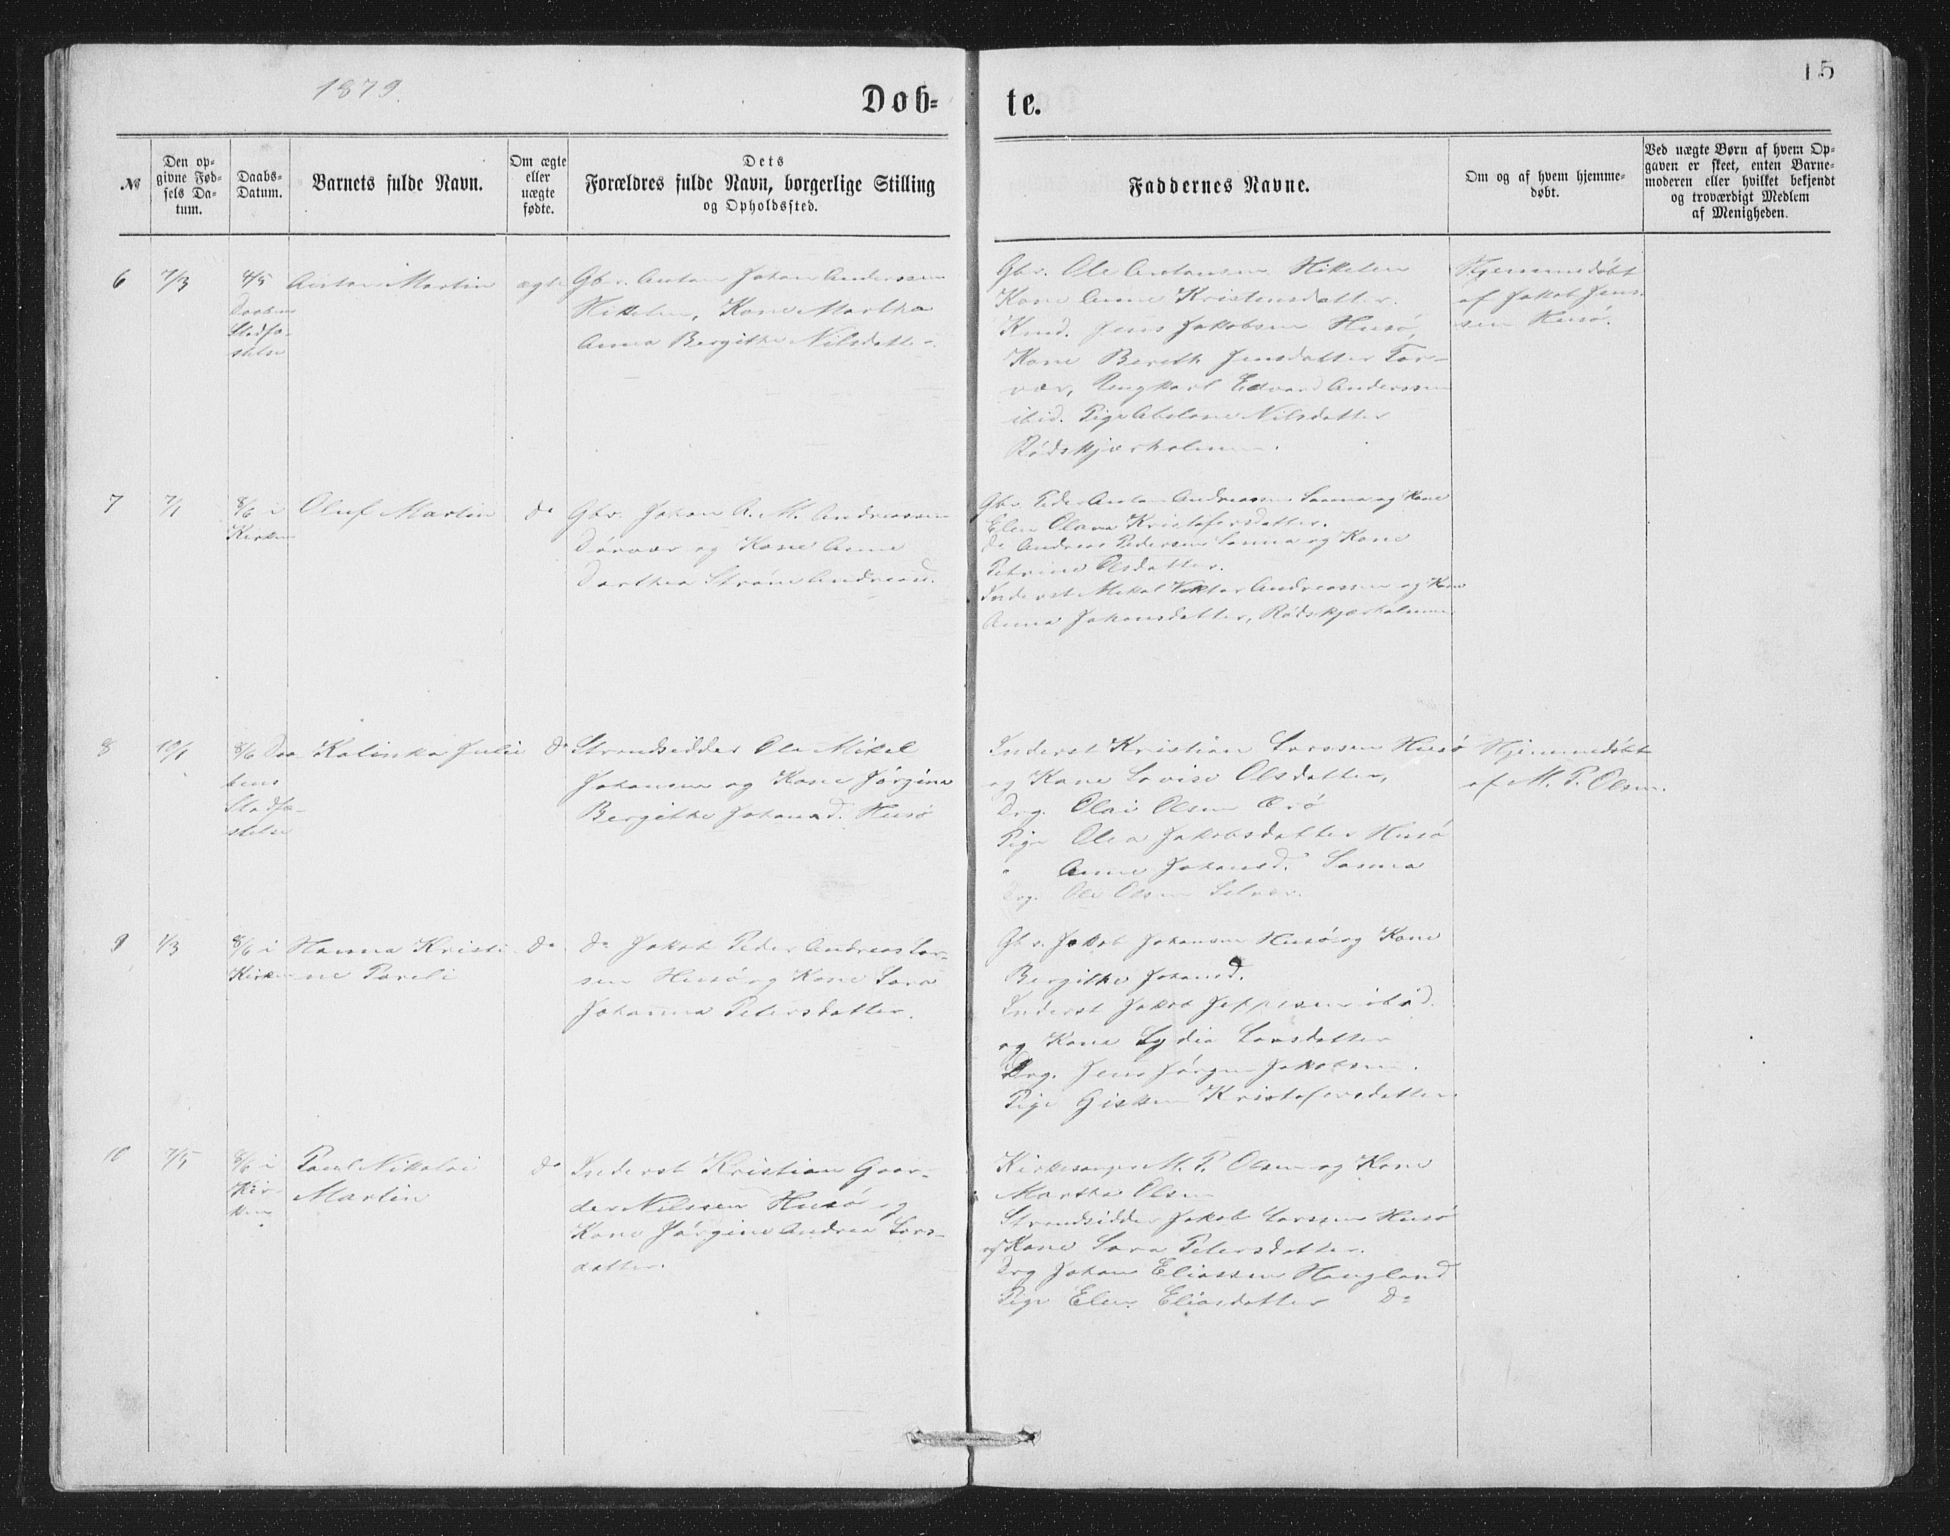 1879.
15
Døb-
te.
№
Den op-
givne Fød-
sels Da-
tum.
Daabs-
Datum.
Barnets fulde Navn.
Om ægte
eller
uægte
fødte.
Dets
Forældres fulde Navn, borgerlige Stilling
og Opholdssted.
Faddernes Navne.
Om og af hvem hjemme-
døbt.
Ved uægte Børn af hvem Op-
gaven er skeet, enten Barne-
moderen eller hvilket bekjendt
og troværdigt Medlem
af Menigheden.
6
7/3
4/5
Daabens
Stadfæ-
stelse
Anton Martin
ægte
Gbr. Anton Johan Anderssen
Kone Martha
Anna Bergithe Nilsdatter.
Gbr. Ole Antonsen
Kone Anne Kristensdatter.
Jens Jakobsen Husø,
Kone Bereth Jensdatter For-
vær, Ungkarl Edvard Anderssen
ibid. Pige Abelone Nilsdatter
Rødskjærholmen.
Hjemmedøbt
af Jakob Jens-
sen Husø.
7
7/1
8/6 i
Kirken
Oluf Martin
do
Gbr. Johan A. M. Andreassen
og Kone Anne
Dorthea Strøm Andreasd.
Gbr. Peder Anton Andreassen Sanna og Kone
Elen Olava Kristofersdatter.
do Andreas Pedersen Sanna og Kone
Petrine Olsdatter.
Inderst Mikal Viktor Andreassen og Kone
Anna Johansdatter, Rødskjærholmen
8
10/1
8/6 Daa
bens
Stadfæ-
stelse
Kalinka Julie
do
Strandsidder Ole Mikal
Johansen og Kone Jørgine
Bergithe Johansd. Husø
Inderst Kristian Larssen Husø
og Kone Lovise Olsdatter,
Drg. Olai Olsen
Pige Olea Jakobsdatter Husø
" Anne Johansd. Sanna
Drg. Ole Olsen Selvær.
Hjemmedøbt
af M. P. Olsen.
9
1/3
8/6 i
Kirken
Hanna Kristi-
ne Pareli
do
do Jakob Peder Andreas Lar-
sen Husø og Kone Sara
Johanna Petersdatter.
Gbr. Jakob Johansen Husø og Kone
Bergithe Johansd.
Inderst Jakob Jeppesen ibid.
og Kone Lydia Larsdatter
Drg. Jens Jørgen Jakobsen.
Pige Gisken Kristofersdatter.
10
7/5
8/6 i
Kir-
ken
Paul Nikolai
Martin
do
Inderst Kristian Gaar-
der Nilssen Husø og
Kone Jørgine Andrea Lars-
datter.
Kirkesanger M. P. Olsen og Kone
Martha Olsen
Strandsidder Jakob Larssen Husø
og Kone Sara Petersdatter.
Drg Johan Eliassen Haugland
Pige Elen Eliasdatter do